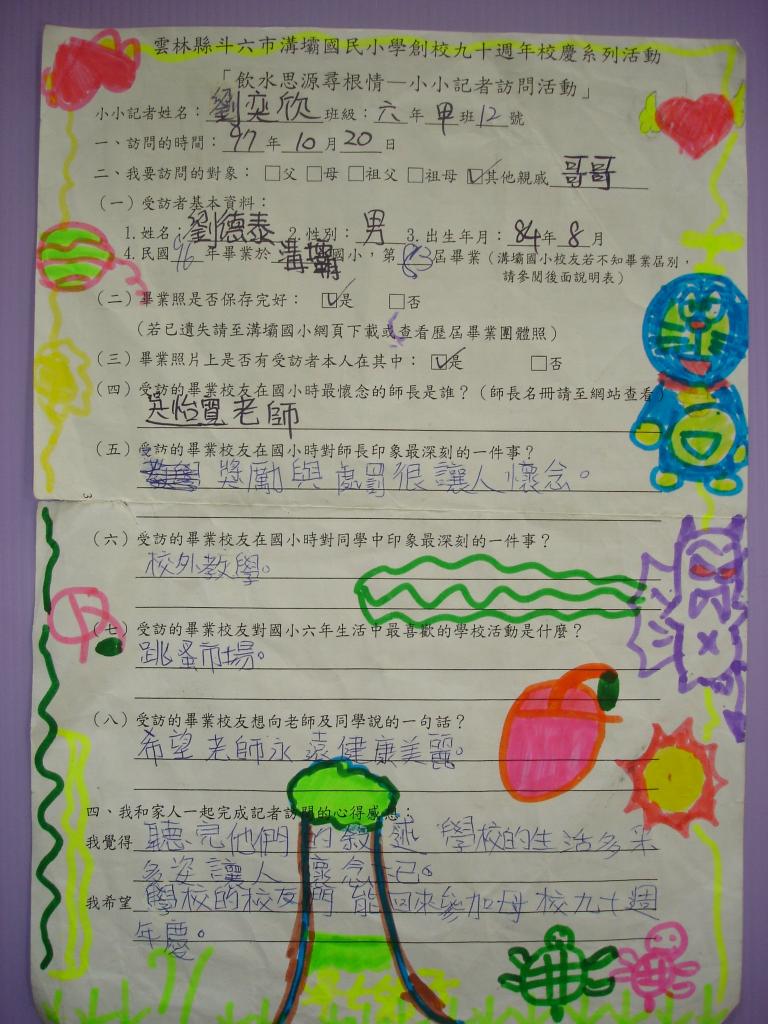 雲林縣斗六市溝壩國民小學創校九十週年校慶系列活動
「飲水思源尋根情—小小記者訪問活動」
小小記者姓名：劉奕欣 班級：六年甲班12號
一、訪問的時間：97年10月20日
二、我要訪問的對象：□父 □母 □祖父 □祖母 ☑其他親戚 哥哥
（一）受訪者基本資料：
1.姓名：劉德泰 2.性別：男 3.出生年月：84年8月
4.民國96年畢業於溝壩國小，第 屆畢業（溝壩國小校友若不知畢業屆別，
請參閱後面說明表）
（二）畢業照是否保存完好：☑是 □否
（若已遺失請至溝壩國小網頁下載或查看歷屆畢業團體照）
（三）畢業照片上是否有受訪者本人在其中：☑是 □否
（四）受訪的畢業校友在國小時最懷念的師長是誰？（師長名冊請至網站查看）
吳怡寬老師
（五）受訪的畢業校友在國小時對師長印象最深刻的一件事？
獎勵與處罰很讓人懷念。
3
（六）受訪的畢業校友在國小時對同學中印象最深刻的一件事？
校外教學。
（七）受訪的畢業校友對國小六年生活中最喜歡的學校活動是什麼？
跳蚤市場。
（八）受訪的畢業校友想向老師及同學說的一句話？
希望老師永遠健康美麗。
四、我和家人一起完成記者訪問的心得感想：
我覺得 聽完他們的敘述 學校的生活多采
多姿讓人懷念不已。
我希望 學校的校友們能回來參加母校九十週
年慶。